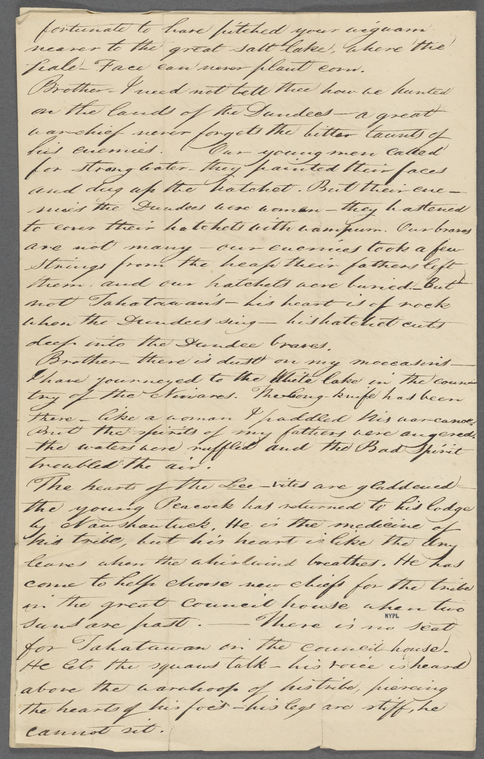 fortunate to have pitched your wigwam
nearer to the great salt lake, where the
Pale-Face can never plant corn.
Brother. I need not tell thee how we hunted
on the lands of the Dundees — a great
war-chief never forgets the bitter taunts of
his enemies. Our young men called
for strong water they painted their faces
and dug up the hatchet. But their ene-
mies the Dundees were women — they hastened
to cover their hatchets with wampum. Our braves
are not many — our enemies took a few
strings from the heap their fathers left
them, and our hatchets were buried — But
not Tahatawan's — his heart is of rock
when the Dundees sing — his hatchet cuts
deep into the Dundee braves.
Brother — there is dust on my moccasins —
I have journeyed to the White lake in the coun-
try of the Ninares. The Long-knife has been
there — like a woman I paddled his war-canoe.
But the spirits of my fathers were angered.
the waters were ruffled and the Bad Spirit
troubled the air.
The hearts of the Lee-vites are gladdened —
the young Peacock has returned to his lodge
by Naushawtuck. He is the medicine of
his tribe, but his heart is like the dry
leaves when the whirlwind breathes. He has
come to help choose new chiefs for the tribe
in the great Council house when two
suns are past. — There is no seat
for Tahatawan in the council-house.
He lets the squaws talk — his voice is heard
above the warwhoop of his tribe, piercing
the hearts of his foes — his legs are stiff, he
cannot sit.
NYPL